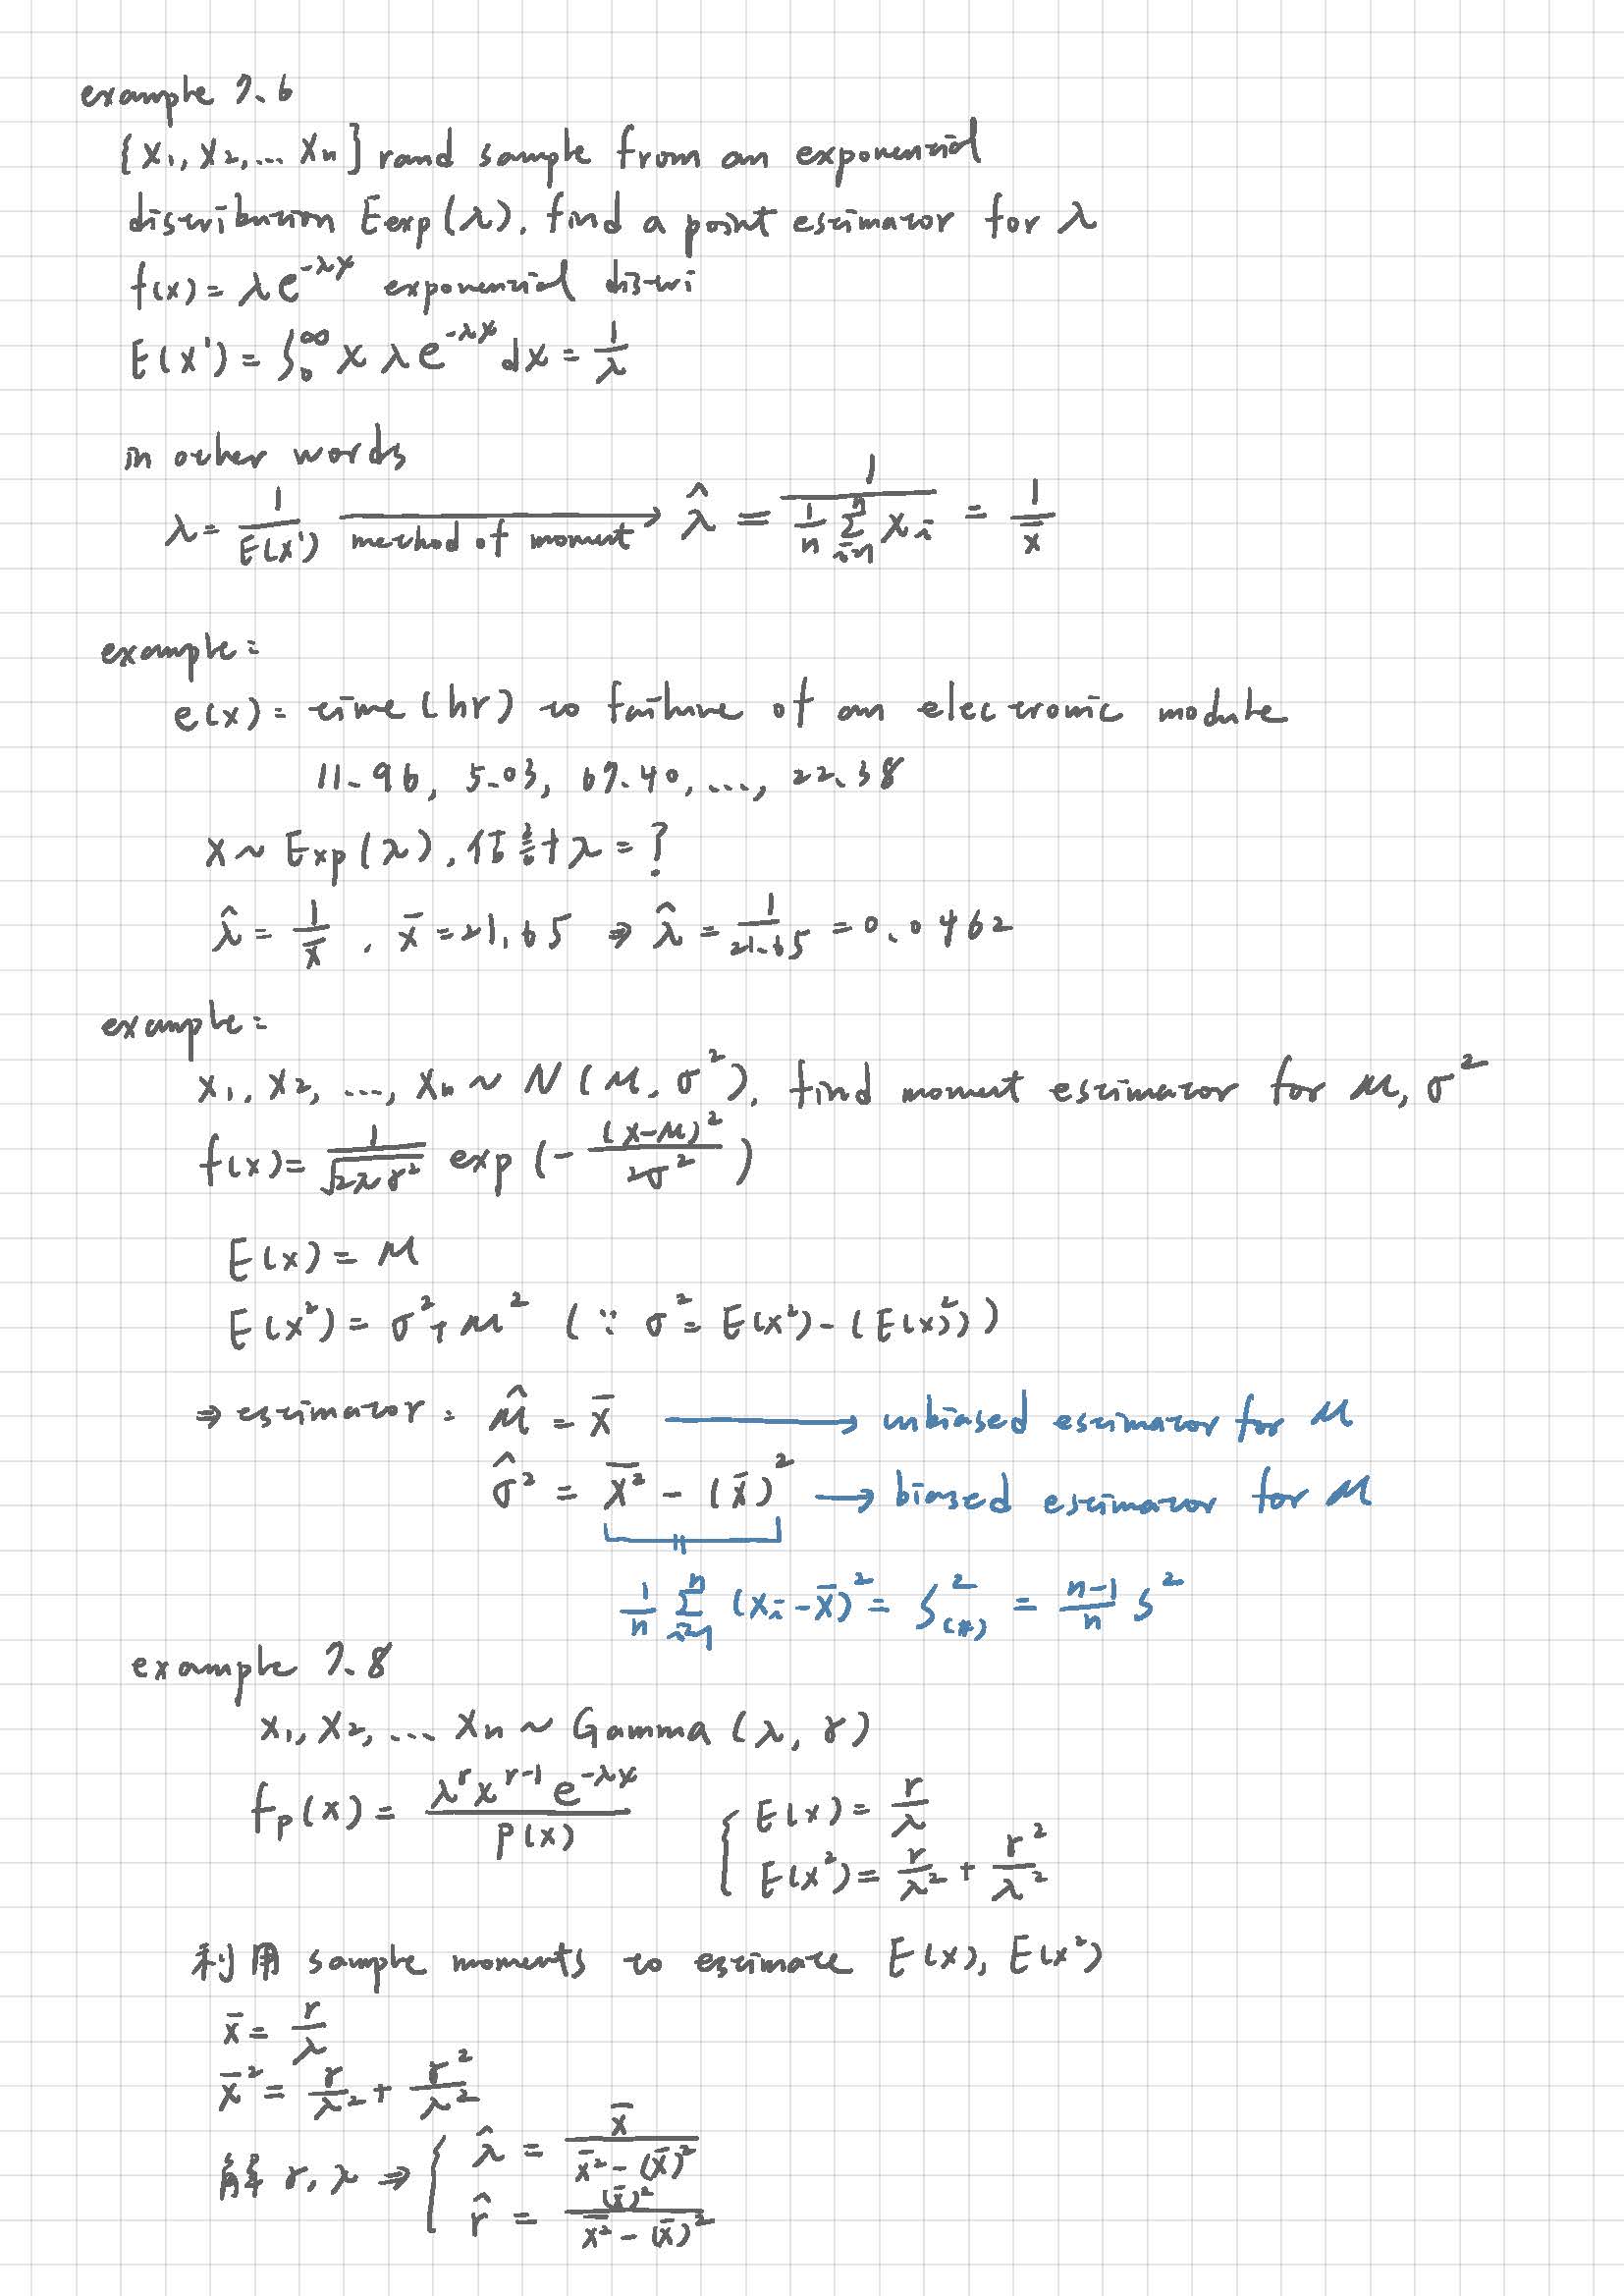 example 7.6
{X₁, X₂, ... Xn} rand sample from an exponential
distribution Eexp(λ), find a point estimator for λ
f(x) = λe^(-λx) exponential distri
E(X') = ∫₀^∞ x λe^(-λx) dx = 1/λ
in other words
λ = 1/E(X') method of moment → λ̂ = 1/((1/n) Σ_(i=1)^n Xi) = 1/x̄
example:
e(x) = time (hr) to failure of an electronic module
11.96, 5.03, 67.40, ..., 22.38
X ~ Exp(λ), 估計 λ = ?
λ̂ = 1/x̄, x̄ = 21.65 ⇒ λ̂ = 1/21.65 = 0.0462
example:
X₁, X₂, ..., Xn ~ N(μ, σ²), find moment estimator for μ, σ²
f(x) = 1/√(2πσ²) exp(-(x-μ)²/2σ²)
E(x) = μ
E(x²) = σ² + μ² (∵ σ² = E(x²) - (E(x)²))
⇒ estimator: μ̂ = x̄ → unbiased estimator for μ
σ̂² = \overline{X²} - (x̄)² → biased estimator for μ
(1/n) Σ_(i=1)^n (Xi - X̄)² = S²_(*) = ((n-1)/n) S²
example 7.8
X₁, X₂, ... Xn ~ Gamma(λ, r)
f_p(x) = λ^r x^(r-1) e^(-λx) / P(x) { E(x) = r/λ
E(x²) = r/λ² + r²/λ²
利用 sample moments to estimate E(x), E(x²)
x̄ = r/λ
x̄² = r/λ² + r²/λ²
解 r, λ ⇒ { λ̂ = x̄ / (x̄² - (x̄)²)
r̂ = (x̄)² / (\overline{x²} - (x̄)²)